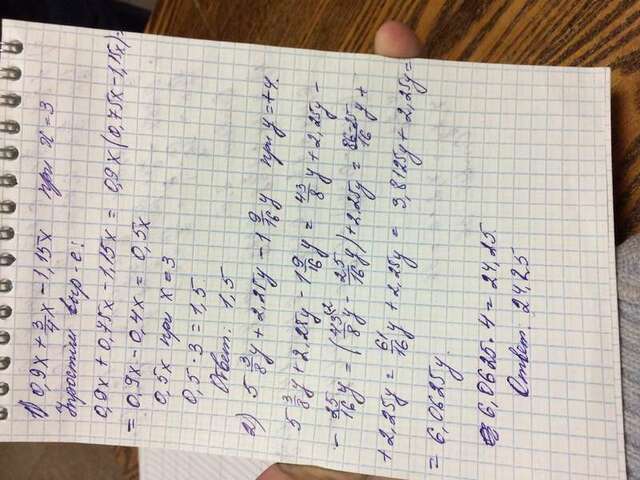 1) 0,9x + 3/4x - 1,15x при x = 3
Упростим выр-е:
0,9x + 0,75x - 1,15x = 0,9x (0,75x - 1,15x) =
= 0,9x - 0,4x = 0,5x
0,5x при x = 3
0,5 · 3 = 1,5
Ответ: 1,5
2) 5 3/8 y + 2,25y - 1 9/16 y при y = +4.
5 3/8 y + 2,25y - 1 9/16 y = 43/8 y + 2,25y -
- 25/16 y = (43/8 y - 25/16 y) + 2,25y = 86-25/16 y +
+ 2,25y = 61/16 y + 2,25y = 3,8125y + 2,25y =
= 6,0625y.
6,0625 · 4 = 24,25
Ответ: 24,25